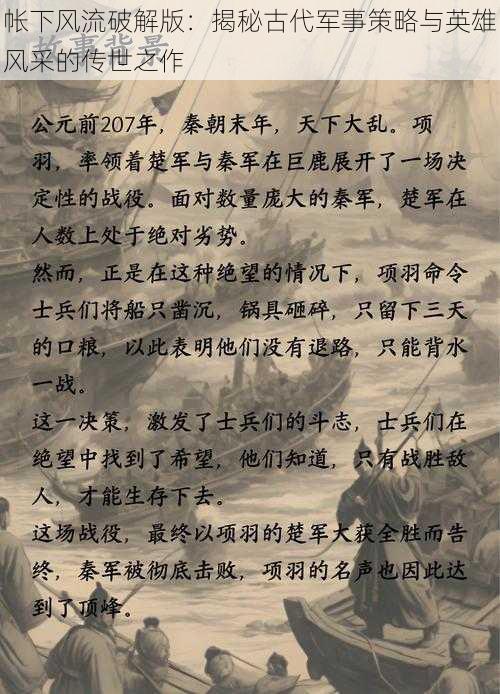 帐下风流破解版：揭秘古代军事策略与英雄
风采的传世之作
故事背景
公元前207年，秦朝末年，天下大乱。项
羽，率领着楚军与秦军在巨鹿展开了一场决
定性的战役。面对数量庞大的秦军，楚军在
人数上处于绝对劣势。
然而，正是在这种绝望的情况下，项羽命令
士兵们将船只凿沉，锅具砸碎，只留下三天
的口粮，以此表明他们没有退路，只能背水
一战。
这一决策，激发了士兵们的斗志，士兵们在
绝望中找到了希望，他们知道，只有战胜敌
人，才能生存下去。
这场战役，最终以项羽的楚军大获全胜而告
终，秦军被彻底击败，项羽的名声也因此达
到了顶峰。